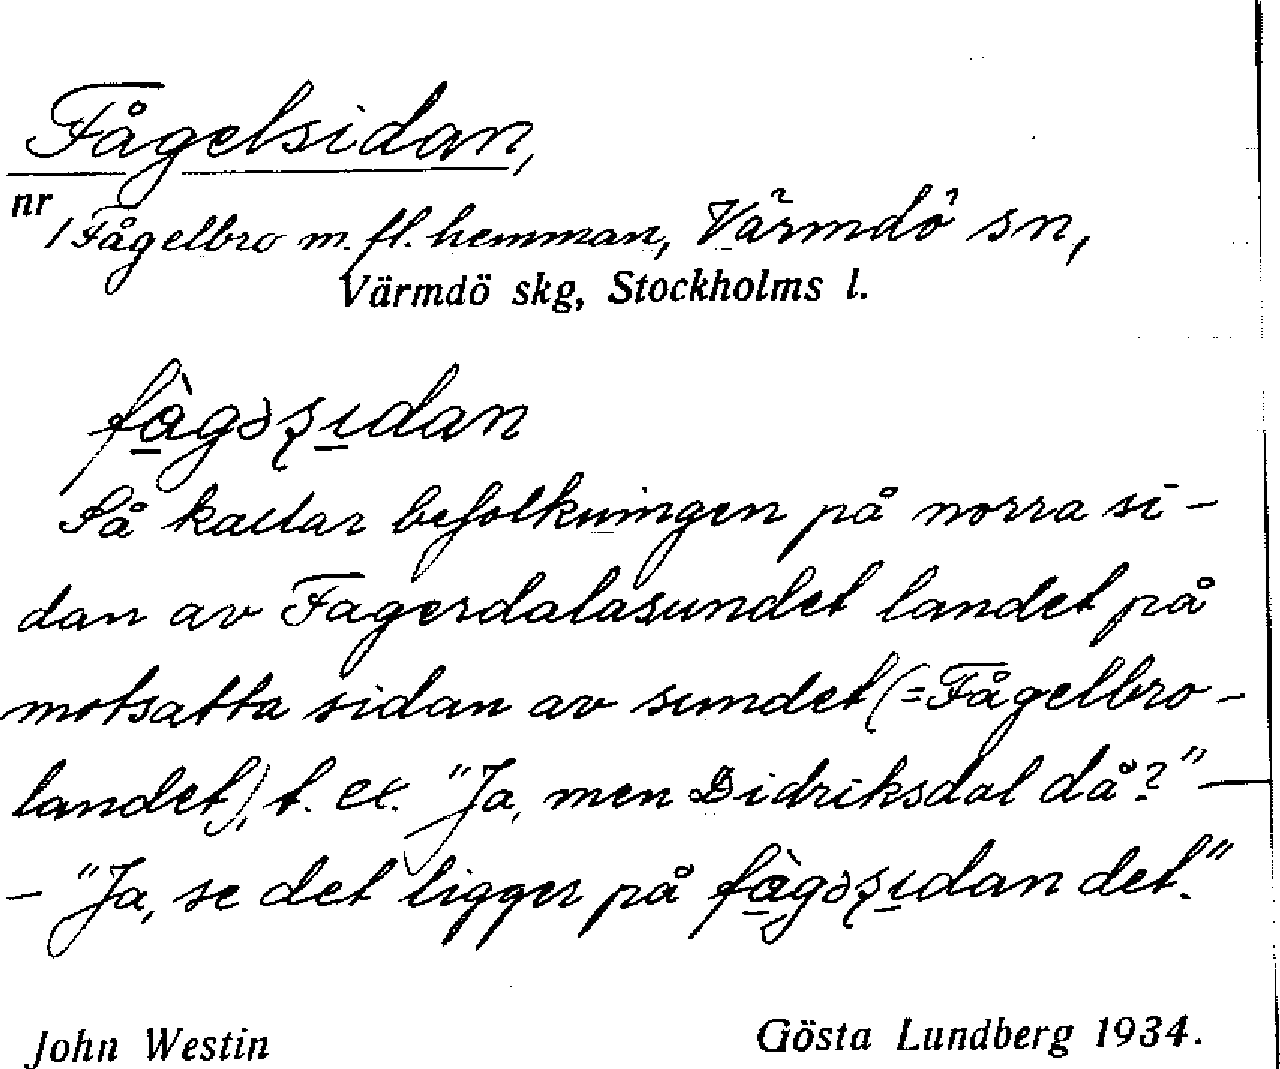 Fågelsidan,
nr
/ Fågelbro m. fl. hemman, Värmdö sn,
Värmdö skg, Stockholms l.
fàgəʂɩdan
Så kallar befolkningen på norra si-
dan av Fagerdalasundet landet på
motsatta sidan av sundet (=Fågelbro-
landet), t. ex. "Ja, men Didriksdal då?" —
– "Ja, se det ligger på fàgəʂɩdan det."
John Westin
Gösta Lundberg 1934.